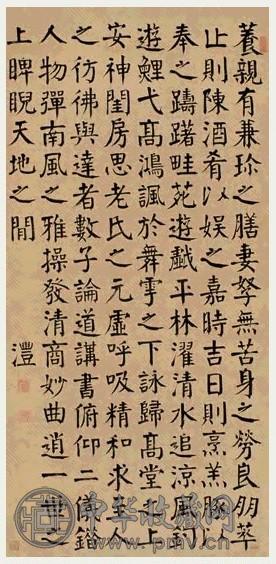 養親有兼珍之膳妻孥無苦身之勞良朋萃
止則陳酒肴以娛之嘉時吉日則烹羔豚以
奉之躊躇畦苑遊戲平林濯清水追涼風釣
遊鯉弋高鴻諷於舞雩之下詠歸高堂之上
安神閨房思老氏之元虛呼吸精和求至人
之彷彿與達者數子論道講書俯仰二儀錯
人物彈南風之雅操發清商妙曲逍一世之
上睥睨天地之間 灃
中华收藏网